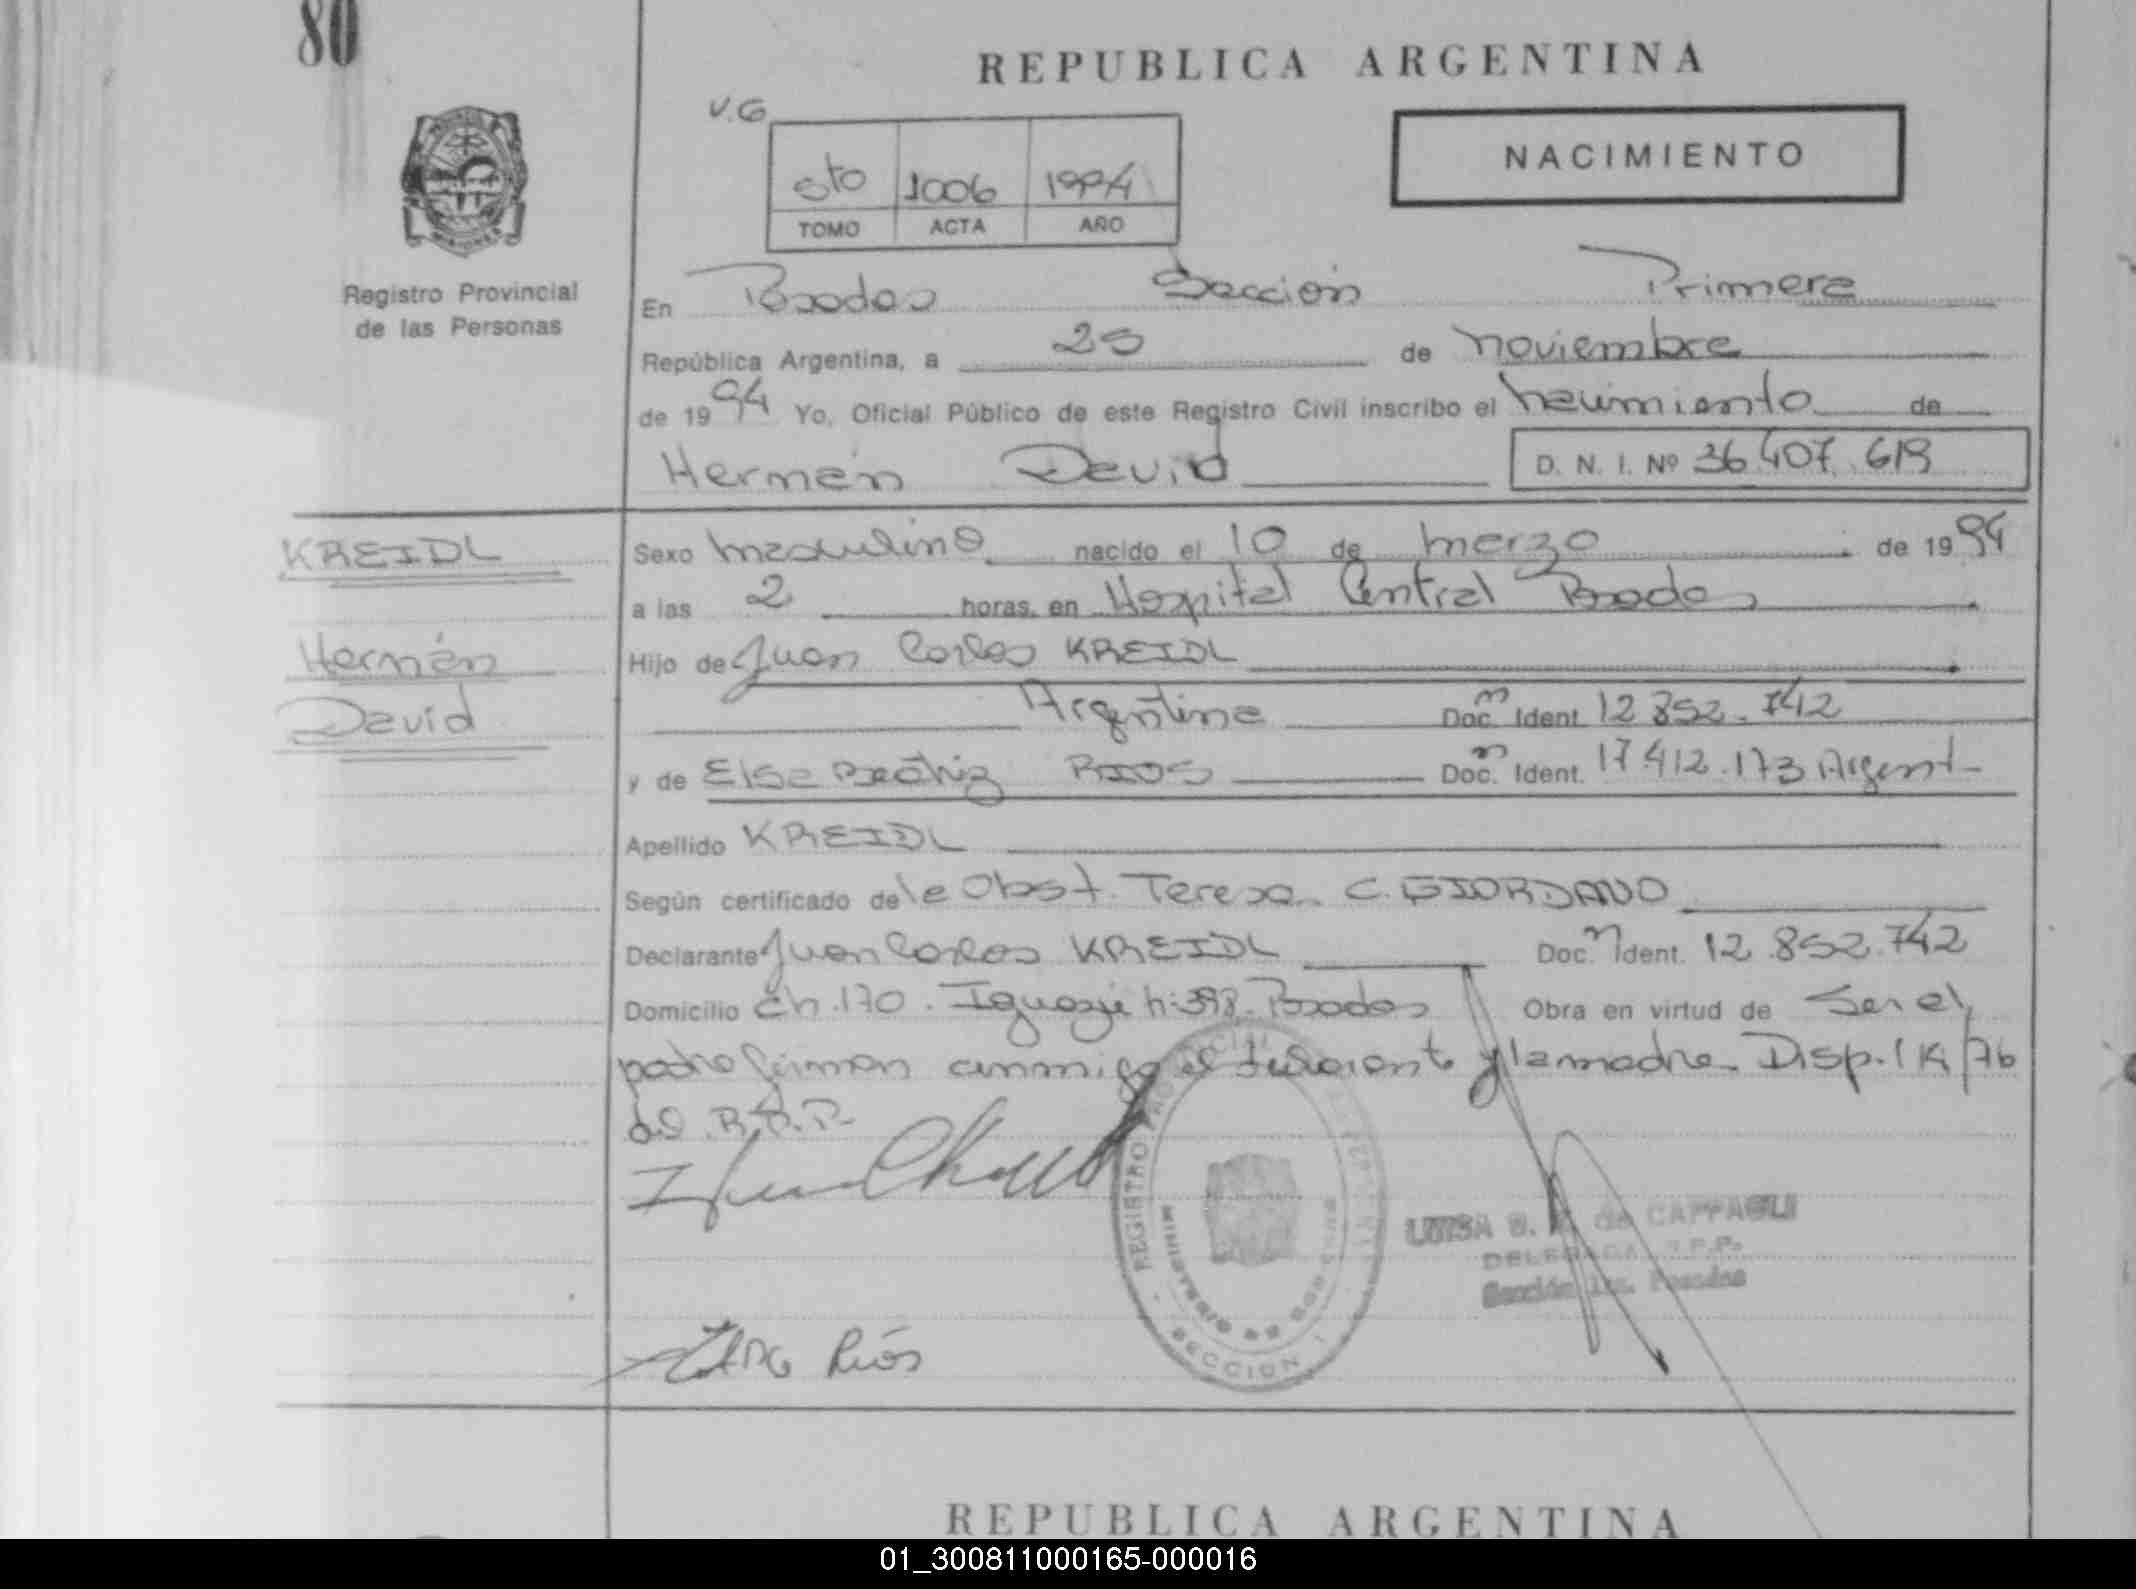 80
REPUBLICA ARGENTINA
V.G
NACIMIENTO
5to 1006 1994
TOMO ACTA AÑO
Registro Provincial
de las Personas
En Posadas Sección Primera
República Argentina, a 25 de noviembre
de 1994 Yo, Oficial Público de este Registro Civil inscribo el nacimiento de
Hernán David D. N. I. Nº 36.407.619
KREIDL
Hernán
David
Sexo masculino nacido el 10 de marzo de 1994
a las 2 horas, en Hospital Central Posadas
Hijo de Juan Carlos KREIDL
Argentina Doc. Ident. 12.852.742
y de Elsa Beatriz RIOS Doc. Ident. 17.412.173 Argent-
Apellido KREIDL
Según certificado de la Obst. Teresa C. GIORDANO
Declarante Juan Carlos KREIDL Doc. Ident. 12.852.742
Domicilio Ch.170. Iguazú n:393-Posadas Obra en virtud de Ser el
padre firman conmigo el declarante y la madre Disp. 14/76
del R.P.P.
Ríos
REGISTRO PROVINCIAL
MINISTERIO DE GOBIERNO
SECCION 1
LUISA B. de CAFFAGLI
DELEGADA R.P.P.
Sección 1ra. Posadas
REPUBLICA ARGENTINA
01_300811000165-000016